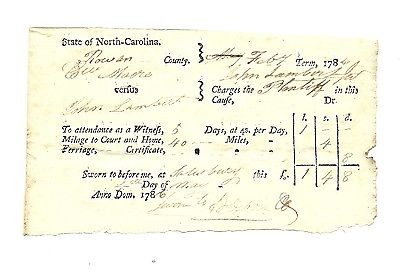 State of North-Carolina.
Rowan County. Feby Term, 178
Moore John Lambert
versus Charges the Plantiff in this
John Lambert Cause, Dr.
l. s. d.
To attendance as a Witness, 5 Days, at 4s. per Day, 1 -
Milage to Court and Home, 40 Miles, 4
Ferriage, Certificate, 8
Sworn to before me, at Salisbury this £. 1 4 8
Day of
Anno Dom. 178